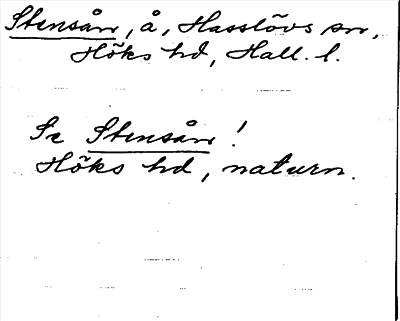 Stensån, å, Hasslövs sn,
Höks hd, Hall. l.
Se Stensån!
Höks hd, naturn.